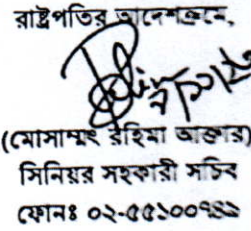 রাষ্ট্রপতির আদেশক্রমে,
(মোসাম্মৎ রহিমা আক্তার)
সিনিয়র সহকারী সচিব
ফোনঃ ০২-৫৫১০০৭